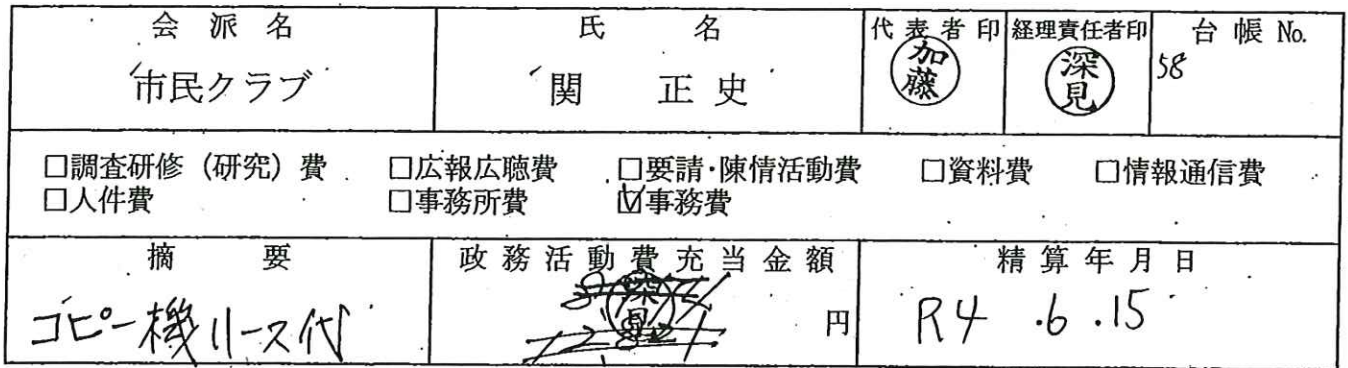 会派名 氏名 代表者印 経理責任者印 台帳 No.
市民クラブ 関 正史 加藤 深見 58
□調査研修（研究）費 □広報広聴費 □要請・陳情活動費 □資料費 □情報通信費
□人件費 □事務所費 ☑事務費
摘要 政務活動費充当金額 精算年月日
コピー機リース代 深見 円 R4.6.15